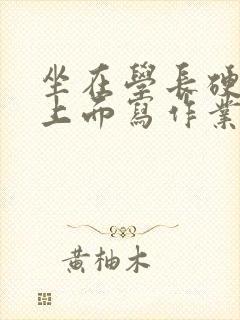 坐在學長硬
上面寫作業
黃柚木